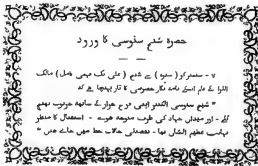 حضرة شیخ سنوسی کا ورود
۷ - سمندر کو ( سفرہ ) سے شیخ ( علی بک فہمی کامل ) مالک
اللوا کے نام اسکے نامہ نگار خصوصی کا تار پہنچا ہے کہ
" شیخ سنوسی الکندر اپنی فوج جرار کے ساتھ جغبوب پہنچ
گئے - اور میدان جہاد کی طرف متوجہ ہوے - استقبال کا منظر
نہایت عظیم الشان تھا - تفصیلی حالات خط میں جاتے ہیں "